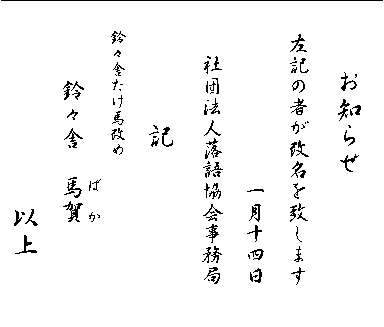 お知らせ
左記の者が改名を致します
一月十四日
社団法人落語協会事務局
記
鈴々舎たけ馬改め
鈴々舎 馬賀
ばか
以上